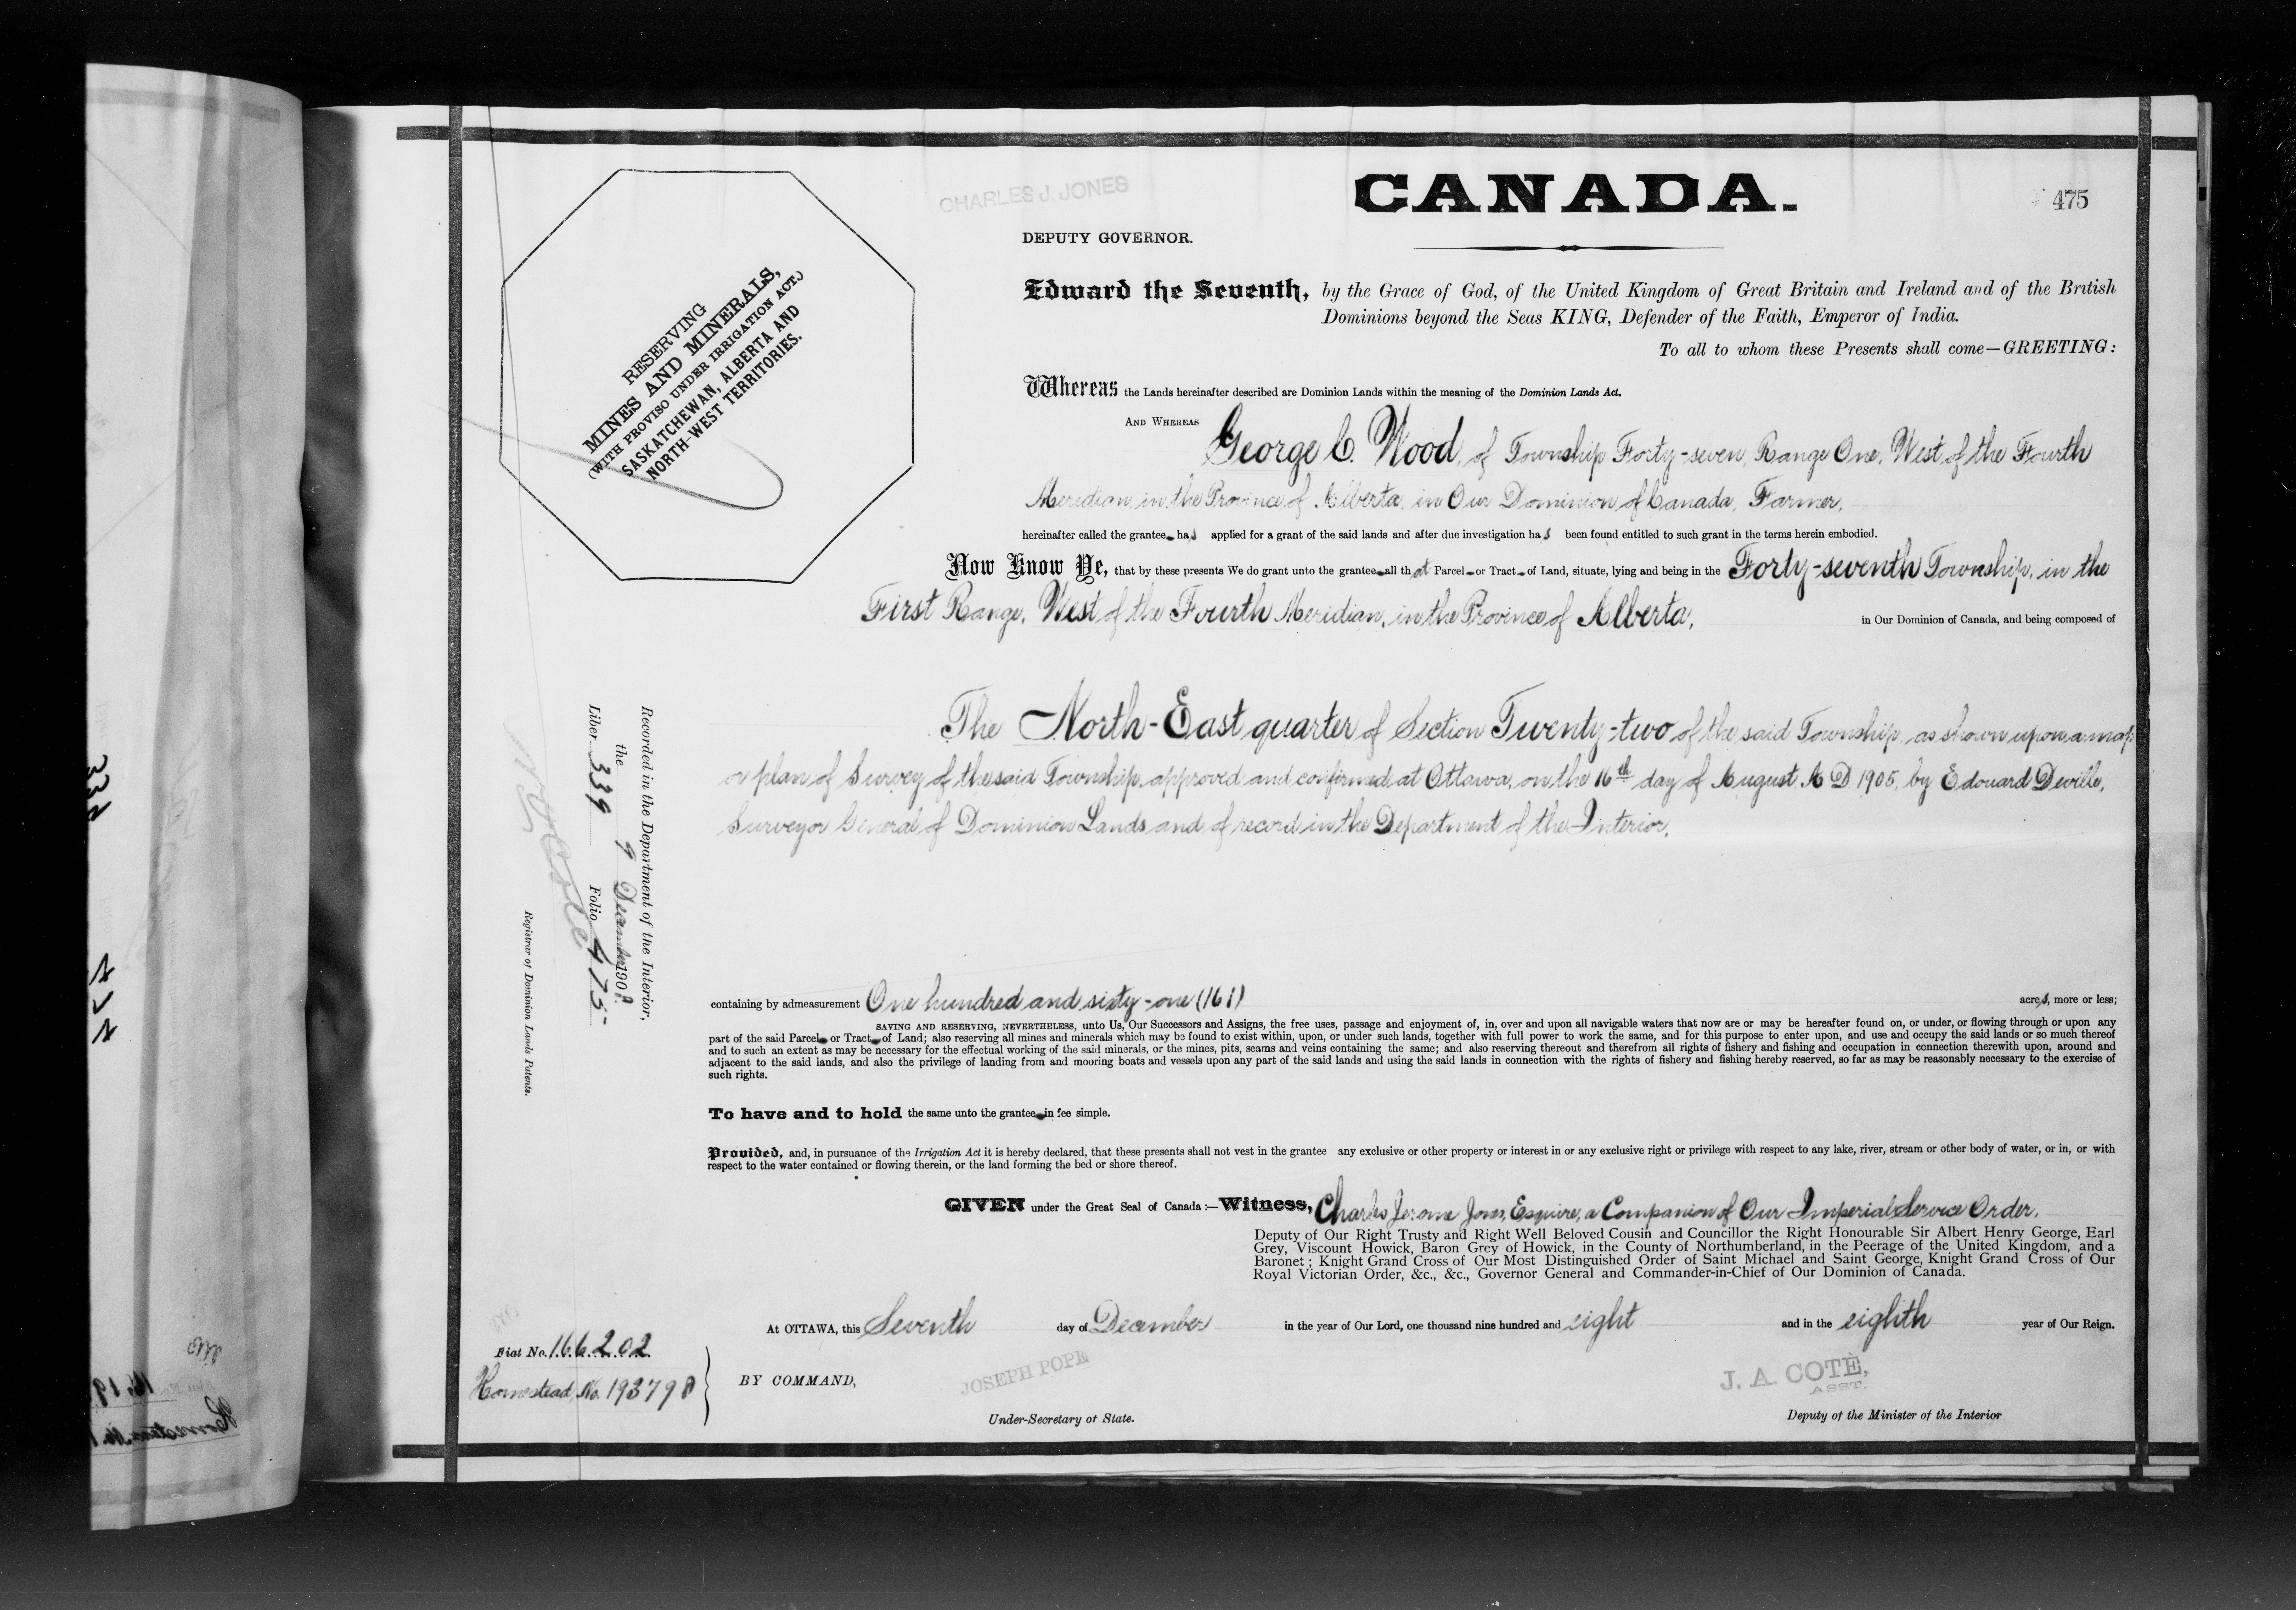 CHARLES J. JONES
CANADA.
475
DEPUTY GOVERNOR.
RESERVING
MINES AND MINERALS,
(WITH PROVISO UNDER IRRIGATION ACT.)
SASKATCHEWAN, ALBERTA AND
NORTH-WEST TERRITORIES.
Edward the Seventh, by the Grace of God, of the United Kingdom of Great Britain and Ireland and of the British
Dominions beyond the Seas KING, Defender of the Faith, Emperor of India.
To all to whom these Presents shall come—GREETING:
Whereas the Lands hereinafter described are Dominion Lands within the meaning of the Dominion Lands Act.
AND WHEREAS George C. Wood, of Township Forty-seven, Range One, West of the Fourth
Meridian, in the Province of Alberta, in Our Dominion of Canada, Farmer,
hereinafter called the grantee has applied for a grant of the said lands and after due investigation has been found entitled to such grant in the terms herein embodied.
Now Know Ye, that by these presents We do grant unto the grantee all that Parcel or Tract of Land, situate, lying and being in the Forty-seventh Township, in the
First Range, West of the Fourth Meridian, in the Province of Alberta, in Our Dominion of Canada, and being composed of
The North-East quarter of Section Twenty-two of the said Township, as shown upon a map
or plan of Survey of the said Township approved and confirmed at Ottawa, on the 16th day of August A D. 1905, by Edouard Deville,
Surveyor General of Dominion Lands and of record in the Department of the Interior.
Recorded in the Department of the Interior,
the 9 December 1908.
Liber 339 Folio 475
N O Cote
Registrar of Dominion Lands Patents.
containing by admeasurement One hundred and sixty-one (161) acres, more or less;
SAVING AND RESERVING, NEVERTHELESS, unto Us, Our Successors and Assigns, the free uses, passage and enjoyment of, in, over and upon all navigable waters that now are or may be hereafter found on, or under, or flowing through or upon any
part of the said Parcel or Tract of Land; also reserving all mines and minerals which may be found to exist within, upon, or under such lands, together with full power to work the same, and for this purpose to enter upon, and use and occupy the said lands or so much thereof
and to such an extent as may be necessary for the effectual working of the said minerals, or the mines, pits, seams and veins containing the same; and also reserving thereout and therefrom all rights of fishery and fishing and occupation in connection therewith upon, around and
adjacent to the said lands, and also the privilege of landing from and mooring boats and vessels upon any part of the said lands and using the said lands in connection with the rights of fishery and fishing hereby reserved, so far as may be reasonably necessary to the exercise of
such rights.
To have and to hold the same unto the grantee in fee simple.
Provided, and, in pursuance of the Irrigation Act it is hereby declared, that these presents shall not vest in the grantee any exclusive or other property or interest in or any exclusive right or privilege with respect to any lake, river, stream or other body of water, or in, or with
respect to the water contained or flowing therein, or the land forming the bed or shore thereof.
GIVEN under the Great Seal of Canada:—Witness, Charles Jerome Jones, Esquire, a Companion of Our Imperial Service Order,
Deputy of Our Right Trusty and Right Well Beloved Cousin and Councillor the Right Honourable Sir Albert Henry George, Earl
Grey, Viscount Howick, Baron Grey of Howick, in the County of Northumberland, in the Peerage of the United Kingdom, and a
Baronet; Knight Grand Cross of Our Most Distinguished Order of Saint Michael and Saint George, Knight Grand Cross of Our
Royal Victorian Order, &c., &c., Governor General and Commander-in-Chief of Our Dominion of Canada.
At OTTAWA, this Seventh day of December in the year of Our Lord, one thousand nine hundred and eight and in the eighth year of Our Reign.
Fiat No. 166202
Homestead No. 193798
BY COMMAND,
JOSEPH POPE
Under-Secretary of State.
J. A. COTÈ,
ASST.
Deputy of the Minister of the Interior